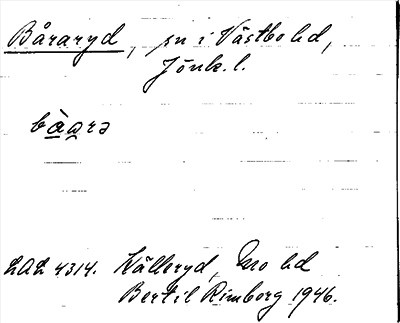 Båraryd, sn i Västbo hd,
Jönk. l.
bàɑrə
LAL 4314. Källeryd, Mo hd
Bertil Rimborg 1946.